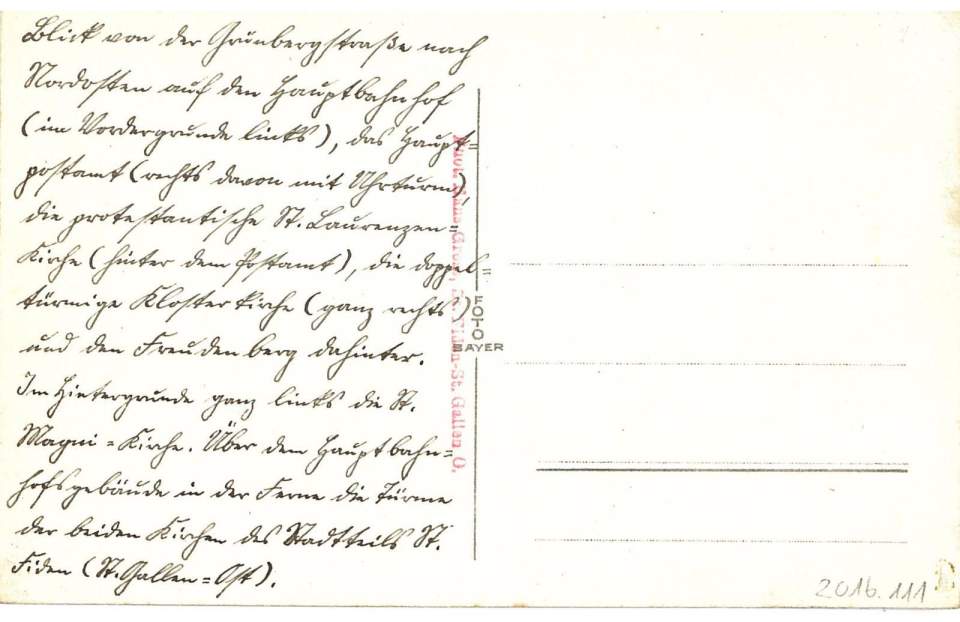 Blick von der Grünbergstraße nach
Nordosten auf den Hauptbahnhof
(im Vordergrunde links), das Haupt=
postamt (rechts davon mit Uhrturm),
die protestantische St. Laurenzen=
Kirche (hinter dem Postamt), die doppel=
türmige Klosterkirche (ganz rechts)
und den Freudenberg dahinter.
Im Hintergrunde ganz links die St.
Magni=Kirche. Über dem Hauptbahn=
hofsgebäude in der Ferne die Türme
der beiden Kirchen des Stadtteils St.
Fiden (St. Gallen=Ost).
Gross, St. Fiden-St. Gallen O.
FOTO
BAYER
2016.111